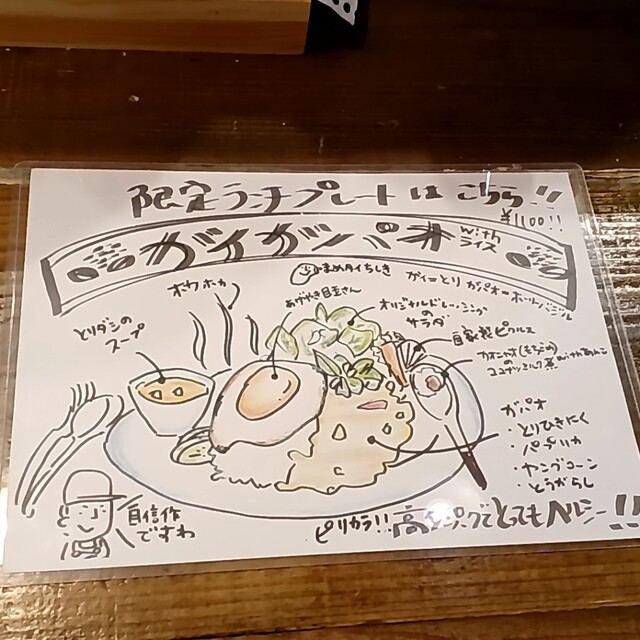 限定ランチプレートは こちら!!
¥1100!!
ガイガパオ withライス
まめタイちしき
ガイ=とり ガパオ=ホットバジル
ホカホカ
あげやき目玉さん
オリジナルドレッシング
の
サラダ
とりダシの
スープ
自家製ピクルス
カオニャオ(もちごめ)
の
ココナッツミルク煮
ガパオ
・とりひきにく
・パプリカ
・ヤングコーン
・とうがらし
自信作
ですわ
ピリカラ!! 高タンパクでとってもヘルシー!!